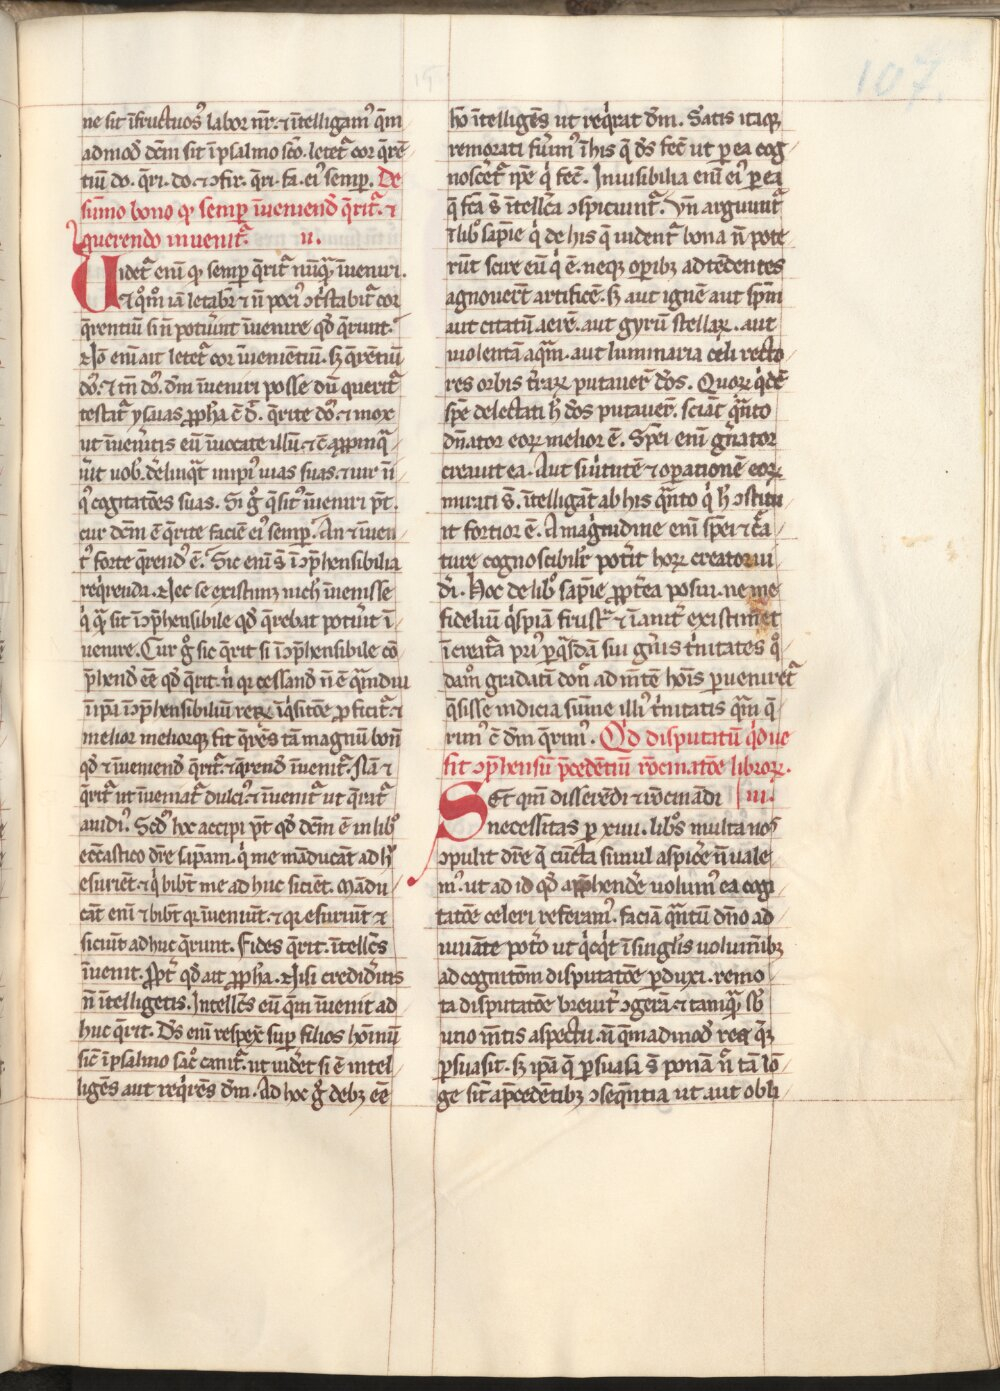 107.
ne sit īfructuosꝰ labor nr̄. ⁊ ītelligamꝰ qm̄
admod̄ dcm̄ sit ī psalmo sc̄o. letet᷑ cor q̄rē
tiū do. q̄ri. do. ⁊ ꝯfir. q̄ri. fa. eiꝰ semꝑ. De
sūmo bono qͥ semꝑ īueniend̄ q̄rit᷑. ⁊
querendo inuenit᷑. ii.
Uidet᷑ enī qͥ semꝑ q̄rit᷑ nūq̄ īueniri.
⁊ qͦm̊ iā letabr̄ ⁊ n̄ pociꝰ ꝯt͛stabit᷑ cor
q̄rentiū si n̄ potuīnt īuenire qd̄ q̄runt.
Nō enī ait letet᷑ cor īuenientiū. sꝫ q̄rētiū
do. ⁊ tn̄ do. dm̄ īueniri posse dū querit᷑
testat᷑ ysaias ꝓph̄a c̄ d̄. q̄rite do. ⁊ mox
ut īuen͛itis eū īuocate illsū. ⁊ c̄ aꝓpinq̄
uīt uob. d̄elinqͣt impiꝰ uias suas. ⁊ uir ī
qͦ cogitatōes suas. Si gͦ q̄sitꝰ īueniri p̄t.
cur dcm̄ ē q̄rite faciē eiꝰ semꝑ. An ⁊ īuen
tꝰ forte q̄rendꝰ ē. Sic enī s̄ īꝯp̄hensibilia
reqͥrenda. Nec se existimꝫ nich̄ īuenisse
qͥ qͣ sit īꝯp̄hensibile qd̄ q̄rebat potūīt ī
uenire. Cur gͦ sic q̄rit si īꝯp̄hensibile cō
p̄hend͛ eē qd̄ q̄rit. n̄ qr cessand̄ n̄ ē qͣmdiu
ī ip̄a īꝯp̄hensibiliū reꝝ īqͥsitōe ꝓficit᷑. ⁊
melior meliorqꝫ fit q̄rēs tā magnū bonū
qd̄ ⁊ īueniend̄ q̄rit᷑. ⁊ q̄rend̄ īuenit᷑. Nā ⁊
q̄rit᷑ ut īueniat᷑ dulciꝰ. ⁊ īuenit᷑ ut q̄rat᷑
auidiꝰ. Scd̄ hoc accipi p̄t qd̄ dcm̄ ē in libͦ
ecc̄astico dr̄e sip̄am. qͥ me māducāt ad h͛
esuriēt. ⁊ qͥ bibt̄ me ad huc sicient. Mādu
cāt enī ⁊ bibt̄ qr īueniūt. ⁊ qr esuriūt ⁊
siciūt ad huc q̄runt. Fides q̄rit. ītellc̄s
īuenit. ꝓpt͛ qd̄ ait ꝓph̄a. Nisi credid͛itis
n̄ ītelligetis. Intellc̄s eū qm̄ īuenit ad
huc q̄rit. Dꝰ enī respex̄ suꝑ filios hoīnū
sic̄ ī psalmo sac̄ canit᷑. ut uid͛et si ē intel
ligēs aut reqͥrēs dm̄. Ad hoc gͦ debꝫ eē
hō ītelligēs ut reqͥrat dm̄. Satis itaqꝫ
remorati fuīmꝰ ī his q̄ dꝰ fec̄ ut ꝑ ea cog
noscēt᷑ ip̄e qͥ fec̄. Inuisibilia enī eiꝰ ꝑ ea
q̄ fc̄a s̄ ītellc̄a ꝯspiciunt᷑. Vn̄ arguunt᷑
ī libͦ sapīe qͥ de his q̄ uident᷑ bona n̄ pote
rūt scire eū qͥ ē. neqꝫ oꝑibꝫ adtēdentes
agnouert̄ artificē. sꝫ aut ignē aut sp̄m
aut citatū aerē. aut gyrū stellaꝝ. aut
uiolentā aqͣm. aut luminaria celi recto
res orbis t͛raꝝ putauer̄ dꝰos. Quoꝝ qͥdē
spē delectati h̄ dꝰos putauer̄. sciāt qͣnto
dn̄ator eoꝝ melior ē. Spēi enī gn̄ator
creauit ea. Aut si uirtutē ⁊ oꝑationē eoꝝ
mirati s̄. ītelligāt ab his qͣnto qͥ h̄ ꝯstitu
it fortior ē. A magnitudine enī spēi ⁊ cͣ
ture cognoscibilr̄ pot͛it hoꝝ creator ui
d͛i. Hoc de libͦ sapīe ꝓpt͛ea posui. ne me
fideliū qͥspiā frustͣ ⁊ ī anit͛ existimet
ī creat͛a priꝰ ꝑ qͣsdā sui gn̄is t͛nitates qͦ
dam̄ gradatī don̄ ad mtē hoīs ꝑuenirēt᷑
q̄sisse indicia sūme illiꝰ t͛nitatis qͣm q̄
rimꝰ c̄ dm̄ q̄rimꝰ. Qd̄ disputatū qͥd ue
sit ꝯp̄hensū p̄cedentiū rōcinatōe libroꝝ.
Set qm̄ disserēdi ⁊ rōcinādi iii.
necessitas ꝑ xiiii. libros multa nos
ꝯpulit dr̄e q̄ cūcta simul aspic͛e n̄ uale
mꝰ. ut ad id qd̄ app̄hend͛e uolumꝰ ea cogi
tatōe celeri referamꝰ. faciā qͣntū dn̄o ad
iuuāte pot͛o ut qͥcqͥt ī singlis uoluīnibꝫ
ad cognitōm disputatōe ꝑduxi. remo
ta disputatōe breuit͛ ꝯgerā. ⁊ tamqͣ sb̄
uno mtis aspectu. n̄ qm̄admod̄ res qͣꝫ
ꝑsuasit. sꝫ ip̄a q̄ ꝑsuasa s̄ ponā n̄ tā lō
ge sit᷑ a p̄cedētibꝫ ꝯseqn̄tia ut aut obli